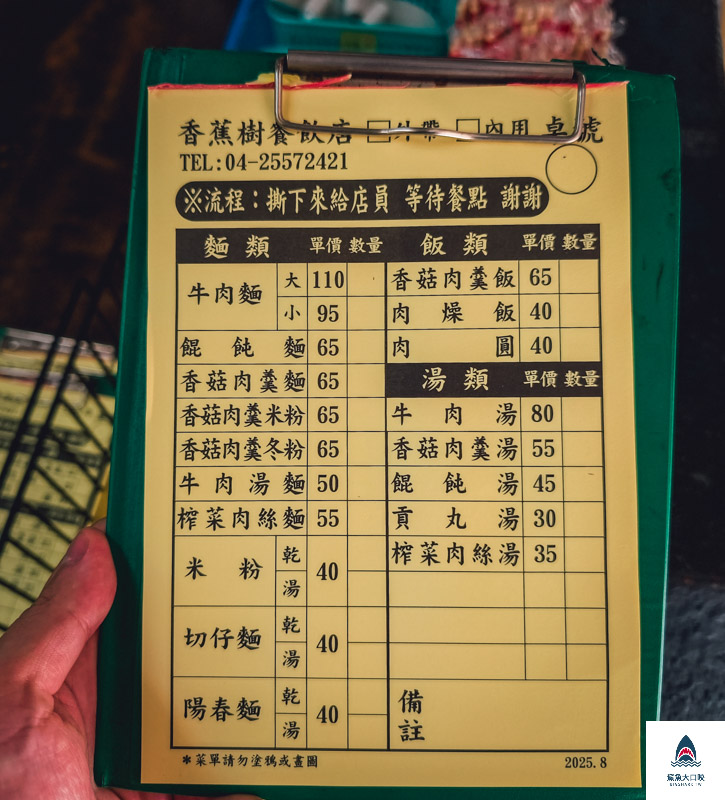 香蕉樹餐飲店 □外帶 □內用 桌號
TEL:04-25572421
※流程：撕下來給店員 等待餐點 謝謝
麵類 單價 數量
牛肉麵 大 110
小 95
餛飩麵 65
香菇肉羹麵 65
香菇肉羹米粉 65
香菇肉羹冬粉 65
牛肉湯麵 50
榨菜肉絲麵 55
米粉 乾 湯 40
切仔麵 乾 湯 40
陽春麵 乾 湯 40
飯類 單價 數量
香菇肉羹飯 65
肉燥飯 40
肉圓 40
湯類 單價 數量
牛肉湯 80
香菇肉羹湯 55
餛飩湯 45
貢丸湯 30
榨菜肉絲湯 35
備註
＊菜單請勿塗鴉或畫圖
2025.8
鯊魚大口咬